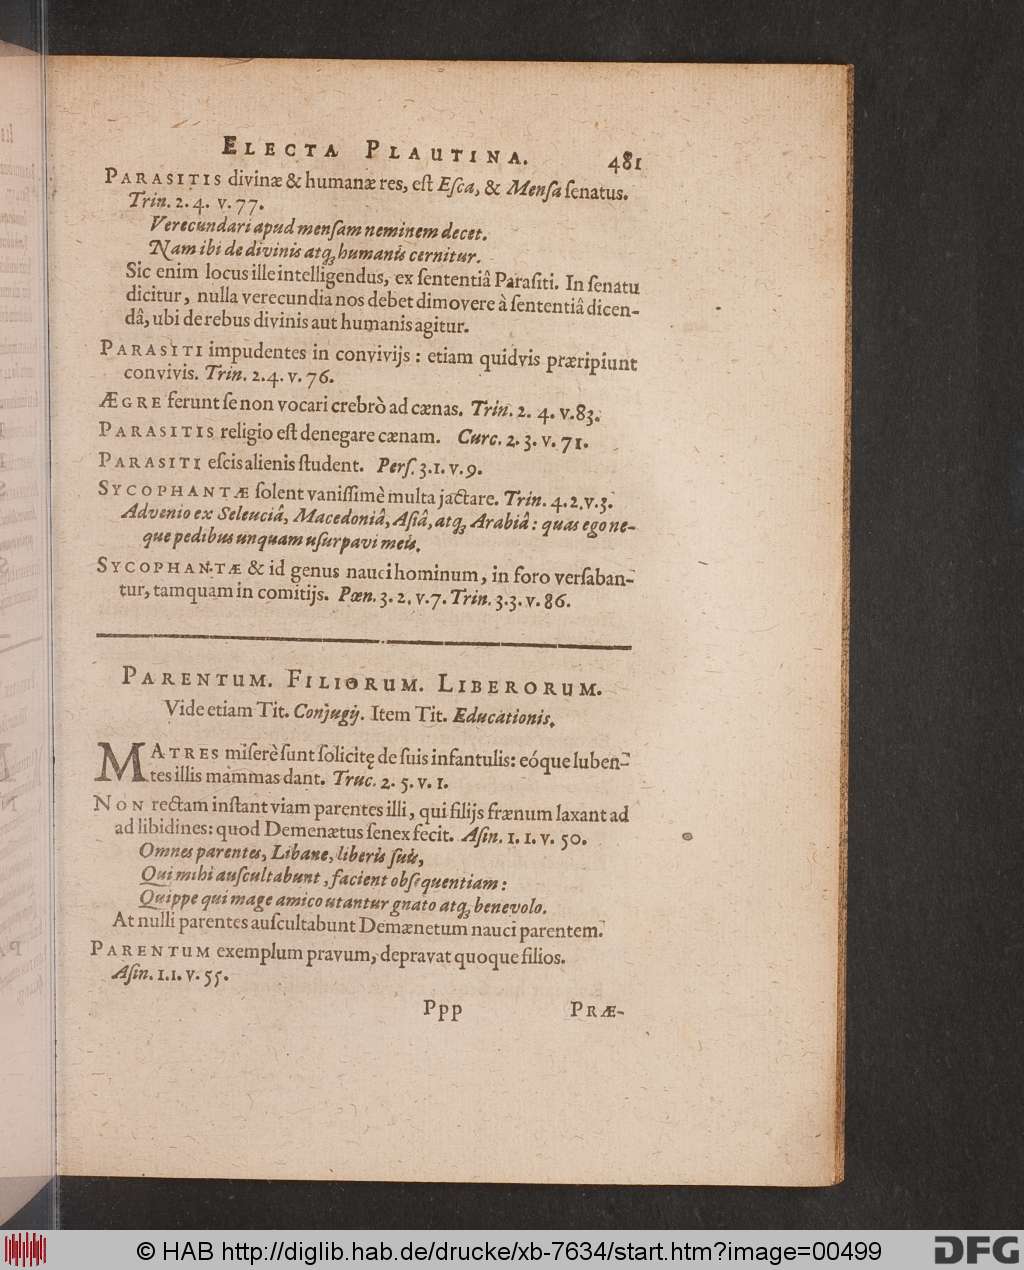 ELECTA PLAUTINA. 481
PARASITIS divinæ & humanæ res, eſt Eſca, & Menſa ſenatus.
Trin. 2. 4. v. 77.
Verecundari apud menſam neminem decet.
Nam ibi de divinis atq; humanis cernitur.
Sic enim locus ille intelligendus, ex ſententiâ Paraſiti. In ſenatu
dicitur, nulla verecundia nos debet dimovere à ſententiâ dicen-
dâ, ubi de rebus divinis aut humanis agitur.
PARASITI impudentes in convivijs: etiam quidvis præripiunt
convivis. Trin. 2. 4. v. 76.
ÆGRE ferunt ſe non vocari crebrò ad cænas. Trin. 2. 4. v. 83.
PARASITIS religio eſt denegare cænam. Curc. 2. 3. v. 71.
PARASITI eſcis alienis ſtudent. Perſ. 3. 1. v. 9.
SYCOPHANTÆ ſolent vaniſſimè multa jactare. Trin. 4. 2. v. 3.
Advenio ex Seleuciâ, Macedoniâ, Aſiâ, atq; Arabiâ: quas ego ne-
que pedibus unquam uſurpavi meis.
SYCOPHANTÆ & id genus nauci hominum, in foro verſaban-
tur, tamquam in comitijs. Pæn. 3. 2. v. 7. Trin. 3. 3. v. 86.
PARENTUM. FILIORUM. LIBERORUM.
Vide etiam Tit. Conjugij. Item Tit. Educationis.
MATRES miſerè ſunt ſolicitę de ſuis infantulis: eóque luben-
tes illis mammas dant. Truc. 2. 5. v. 1.
NON rectam inſtant viam parentes illi, qui filijs frænum laxant ad
ad libidines: quod Demenætus ſenex fecit. Aſin. 1. 1. v. 50.
Omnes parentes, Libane, liberis ſuis,
Qui mihi auſcultabunt, facient obſequentiam:
Quippe qui mage amico utantur gnato atq; benevolo.
At nulli parentes auſcultabunt Demænetum nauci parentem.
PARENTUM exemplum pravum, depravat quoque filios.
Aſin. 1. 1. v. 55.
Ppp PRÆ-
© HAB http://diglib.hab.de/drucke/xb-7634/start.htm?image=00499 DFG